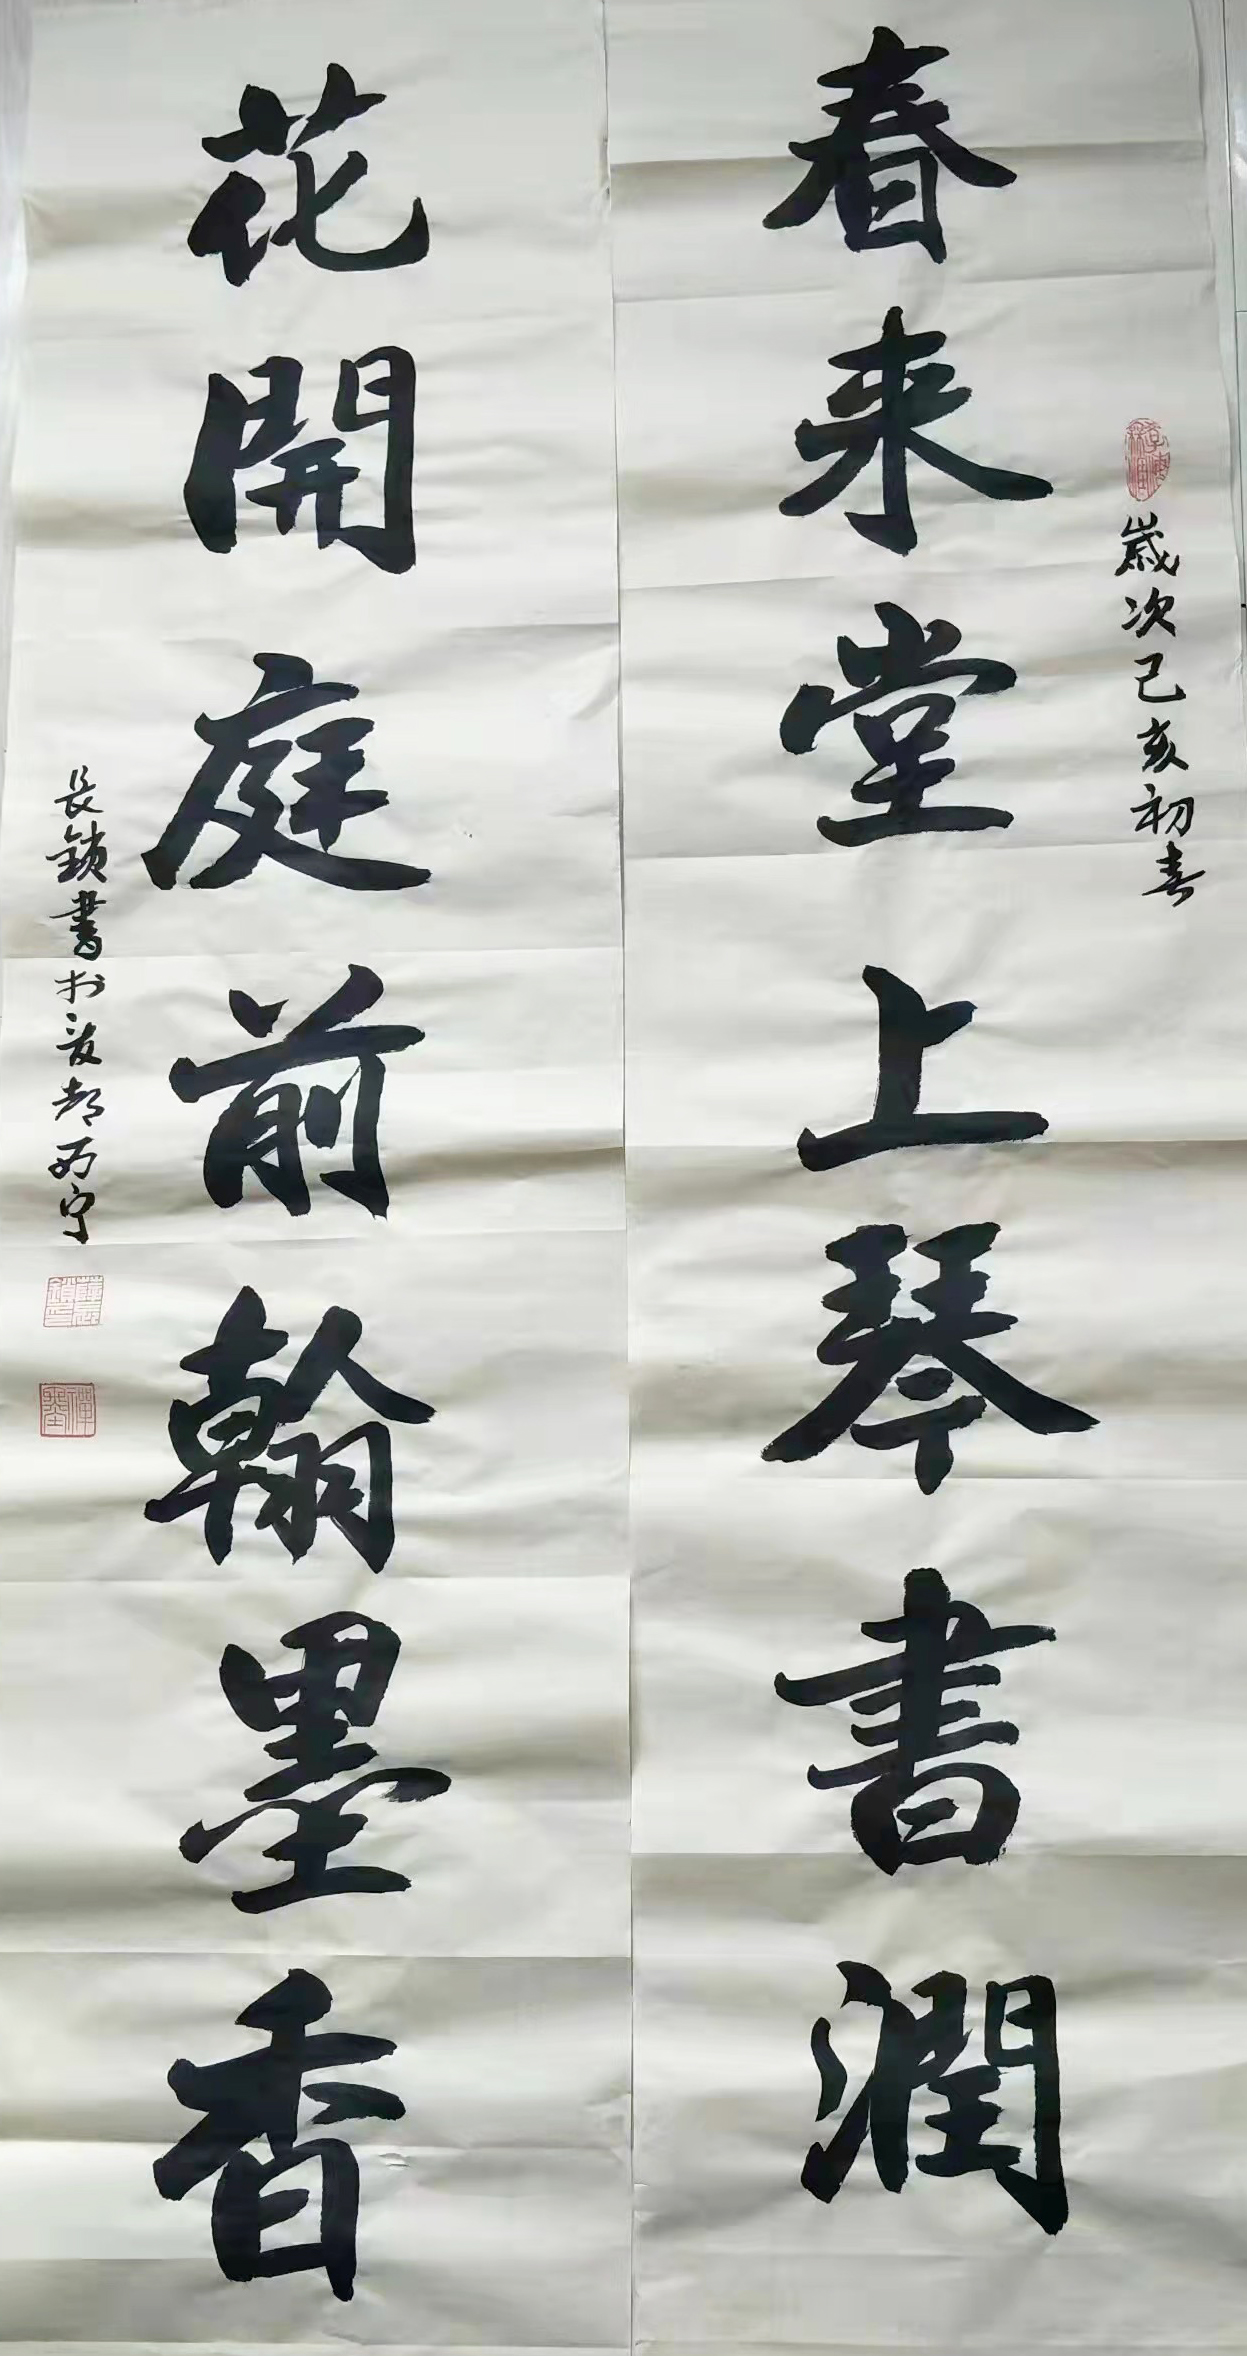 春来堂上琴書潤
歲次己亥初春
花開庭前翰墨香
長鎖書於夏都西宁